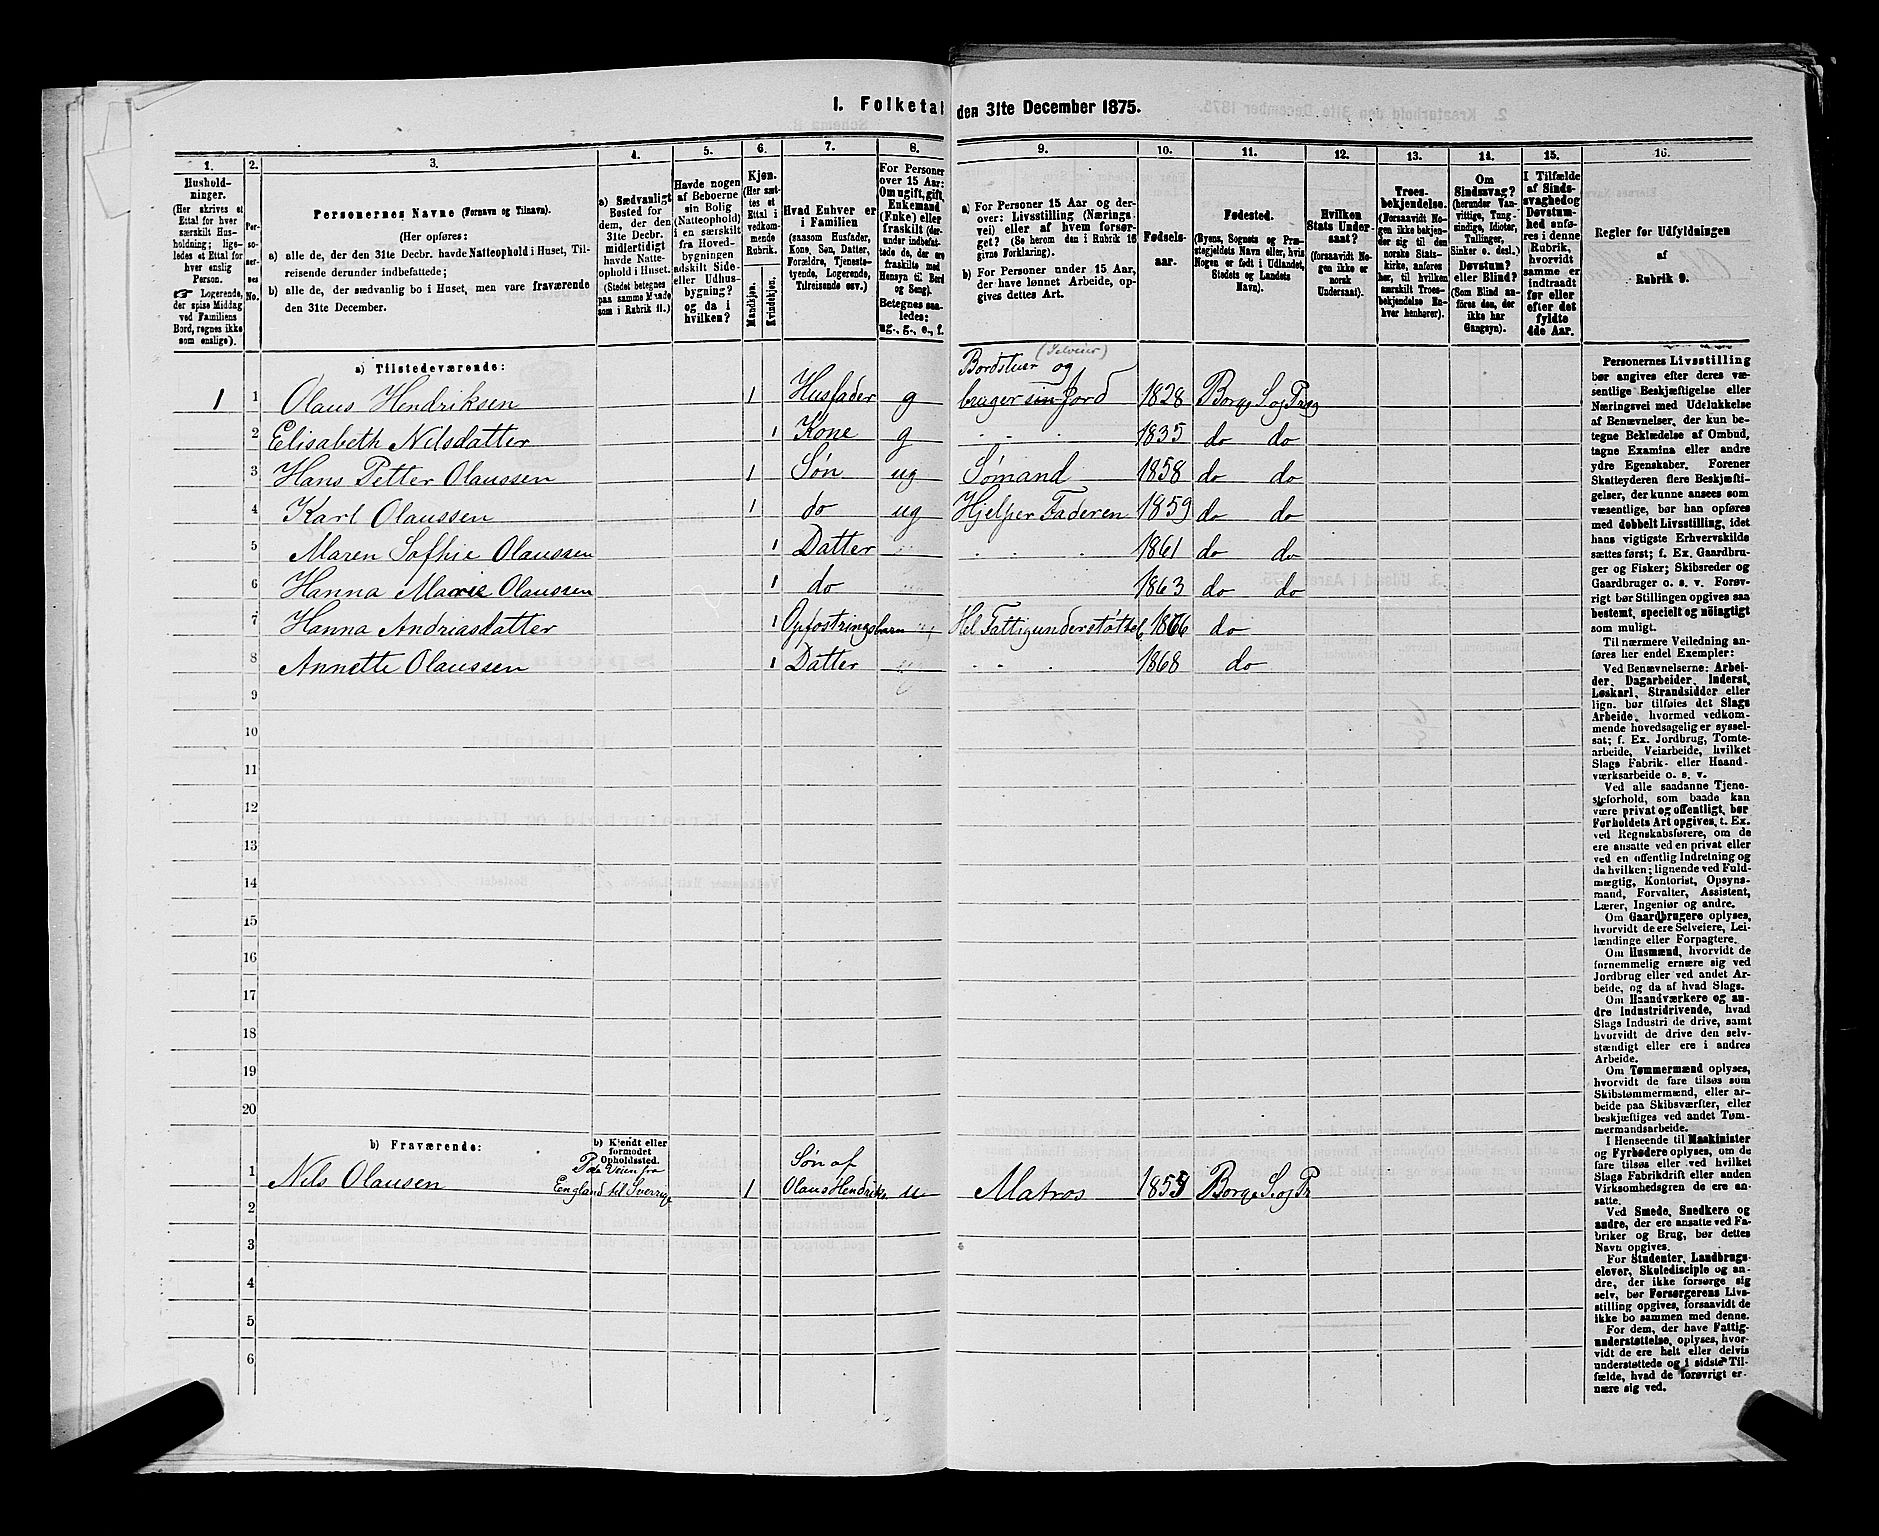 1. Folketal den 31te December 1875.
1. 2. 3. 4. 5. 6. 7. 8. 9. 10. 11. 12. 13. 14. 15. 16.
Husholdninger.
(Her skrives et
Ettal for hver
særskilt Husholdning;
ligeledes et Ettal for
hver enslig
Person.
Logerende,
der spise Middag
ved Familiens
Bord, regnes ikke
som enslige).
Personernes No.
Personernes Navne (Fornavn og Tilnavn).
(Her opføres:
a) alle de, der den 31te Decbr. havde Natteophold i Huset, Tilreisende
derunder indbefattede;
b) alle de, der sædvanlig bo i Huset, men vare fraværende
den 31te December.
a) Sædvanligt
Bosted for
dem, der den
31te Decbr.
midlertidigt
havde Natteophold
i Huset.
(Stedet betegnes
paa samme Maade
som i Rubrik 11.)
Havde nogen
af Beboerne
sin Bolig
(Natteophold)
i en særskilt
fra Hovedbygningen
adskilt Side-
eller Udhusbygning?
og da i
hvilken?
Kjøn.
(Her sættes
et
Ettal i
vedkommende
Rubrik.
Mandkjøn.
Kvindekjøn.
Hvad Enhver er
i Familien
(saasom Husfader,
Kone, Søn, Datter,
Forældre, Tjenestetyende,
Logerende,
Tilreisende osv.)
For Personer
over 15 Aar:
Om ugift, gift,
Enkemand
(Enke) eller
fraskilt (derunder
indbefattede
de, der ere
fraskilte med
Hensyn til Bord
og Seng).
Betegnes saaledes:
ug., g., e., f.
a) For Personer 15 Aar og derover:
Livsstilling (Næringsvei)
eller af hvem forsørget?
(Se herom den i Rubrik 16
givne Forklaring).
b) For Personer under 15 Aar,
der have lønnet Arbeide, opgives
dettes Art.
Fødselsaar.
Fødested.
(Byens, Sognets og Præstegjeldets
Navn eller, hvis
Nogen er født i Udlandet,
Stedets og Landets
Navn).
Hvilken
Stats Undersaat?
(forsaavidt Nogen
ikke er
norsk
Undersaat).
Troesbekjendelse.
(Forsaavidt Nogen
ikke bekjender
sig til den
norske Statskirke,
anføres
her, til hvilken
særskilt Troesbekjendelse
Enhver
henhører).
Om
Sindssvag?
(herunder Vanvittige,
Tungsindige,
Idioter,
Tullinger,
Sinker o. desl.).
Døvstum?
eller Blind?
(Som Blind anføres
den, der
ikke har
Gangsyn).
I Tilfælde
af Sindssvaghed
og
Døvstumhed
anføres
i denne
Rubrik,
hvorvidt
samme er
indtraadt
før eller
efter det
fyldte
4de Aar.
Regler for Udfyldningen
af
Rubrik 9.
a) Tilstedeværende:
(Selveier)
Bordstuer og
1 1 Olaus Hendriksen 1 Husfader g bruger sin Jord 1828 Borge S og Præg
2 Elisabeth Nilsdatter 1 Kone g - - - 1835 do do
3 Hans Petter Olaussen 1 Søn ug Sømand 1858 do do
4 Karl Olaussen 1 do ug Hjelper Faderen 1859 do do
5 Maren Saffie Olaussen 1 Datter - - - 1861 do do
6 Hanna Marie Olaussen 1 do 1863 do do
7 Hanna Andriasdatter 1 Opfostringsbarn Hel Fattigunderstøttet 1866 do
8 Annette Olaussen 1 Datter - - - 1868 do
9
10
11
12
13
14
15
16
17
18
19
20
b) Fraværende:
b) Kjendt eller
formodet
Opholdssted.
Paa Veien fra Søn af
1 Nils Olausen England til Sverrige 1 Olaus Hendriks u Matros 1855 Borge S. og Pr
2
3
4
5
6
Personernes Livsstilling
bør angives efter deres væsentlige
Beskjæftigelse eller
Næringsvei med Udelukkelse
af Benævnelser, der kun betegne
Beklædelse af Ombud,
tagne Examina eller andre
ydre Egenskaber. Forener
Skatteyderen flere Beskjæftigelser,
der kunne ansees som
væsentlige, bør han opføres
med dobbelt Livsstilling, idet
hans vigtigste Erhvervskilde
sættes først; f. Ex. Gaardbruger
og Fisker; Skibsreder og
Gaardbruger o. s. v. Forøvrigt
bør Stillingen opgives saa
bestemt, specielt og nöiagtigt
som muligt.
Til nærmere Veiledning anføres
her endel Exempler:
Ved Benævnelserne: Arbeider,
Dagarbeider, Inderst,
Løskarl, Strandsidder eller
lign. bør tilføies det Slags
Arbeide, hvormed vedkommende
hovedsagelig er sysselsat;
f. Ex. Jordbrug, Tomtearbeide,
Veiarbeide, hvilket
Slags Fabrik- eller Haandværksarbeide
o. s. v.
Ved alle saadanne Tjenesteforhold,
som baade kan
være privat og offentligt, bør
Forholdets Art opgives, t. Ex.
ved Regnskabsførere, om de
ere ansatte ved en privat eller
ved en offentlig Indretning og
da hvilken; lignende ved Fuldmægtig,
Kontorist, Opsynsmand,
Forvalter, Assistent,
Lærer, Ingeniør og andre.
Om Gaardbrugere oplyses,
hvorvidt de ere Selveiere, Leilændinge
eller Forpagtere.
Om Husmænd, hvorvidt de
fornemmelig ernære sig ved
Jordbrug eller ved andet Arbeide,
og da af hvad Slags.
Om Haandværkere og andre
Industridrivende, hvad
Slags Industri de drive, samt
hvorvidt de drive den selvstændigt
eller ere i andres
Arbeide.
Om Tømmermænd oplyses,
hvorvidt de fare tilsøs som
Skibstømmermænd, eller arbeide
paa Skibsværfter, eller
beskjæftiges ved andet Tømmermandsarbeide.
I Henseende til Maskinister
og Fyrbødere oplyses, om de
fare tilsøs eller ved hvilket
Slags Fabrikdrift eller anden
Virksomhedsgren de ere ansatte.
Ved Smede, Snedkere og
andre, der ere ansatte ved Fabriker
og Brug, bør dettes
Navn opgives.
For Studenter, Landbrugselever,
Skoledisciple og andre,
der ikke forsørge sig
selv, bør Forsørgerens Livsstilling
opgives, forsaavidt de
ikke bo sammen med denne.
For dem, der have Fattigunderstøttelse,
oplyses, hvorvidt
de ere helt eller delvis
understøttede og i sidste Tilfælde,
hvad de forøvrigt ernære
sig ved.